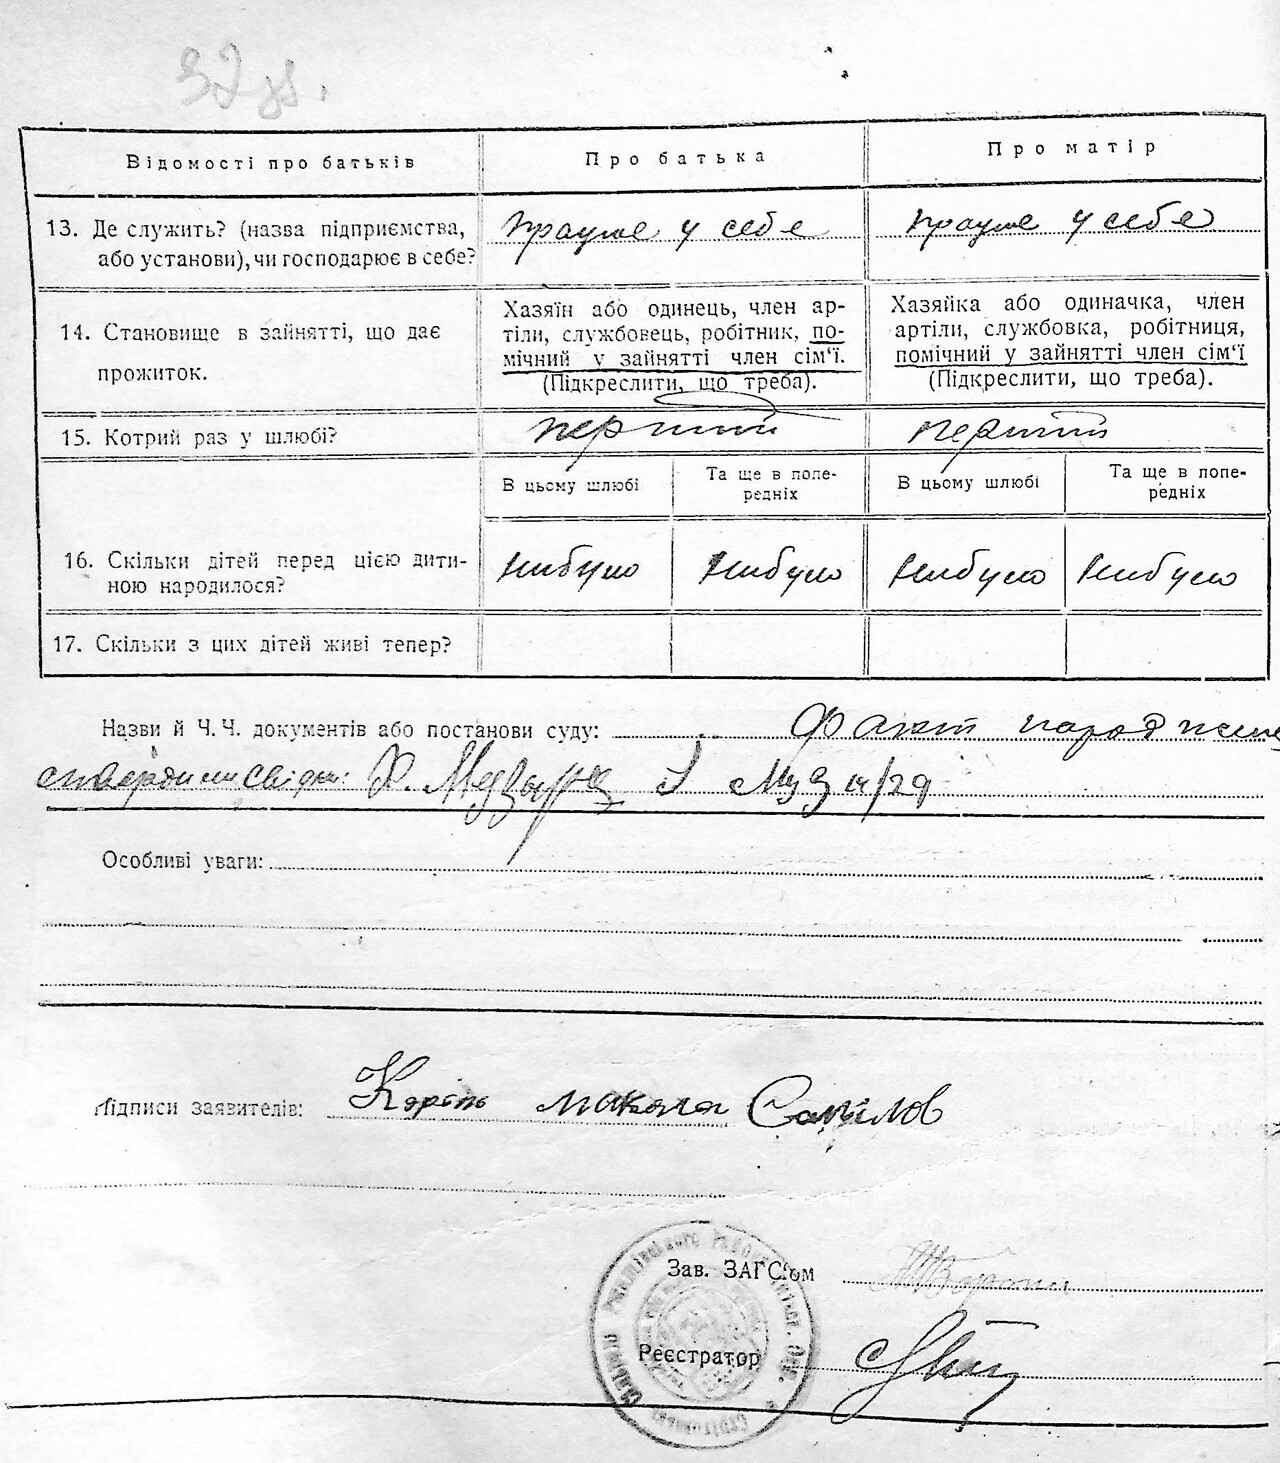 32
Відомості про батьків
Про батька
Про матір
13. Де служить? (назва підприємства,
або установи), чи господарює в себе?
працює у себе
працює у себе
14. Становище в зайнятті, що дає
прожиток.
Хазяїн або одинець, член ар-
тіли, службовець, робітник, по-
мічний у зайнятті член сім'ї.
(Підкреслити, що треба).
Хазяйка або одиначка, член
артіли, службовка, робітниця,
помічний у зайнятті член сім'ї
(Підкреслити, що треба).
15. Котрий раз у шлюбі?
перший
перший
В цьому шлюбі
Та ще в попе-
редніх
В цьому шлюбі
Та ще в попе-
редніх
16. Скільки дітей перед цією дити-
ною народилося?
нибуло
нибуло
нибуло
нибуло
17. Скільки з цих дітей живі тепер?
Назви й Ч. Ч. документів або постанови суду: Факт народження
ствердили свідки:
Особливі уваги:
Підписи заявителів: микола
Зав. ЗАГС'ом
Реєстратор